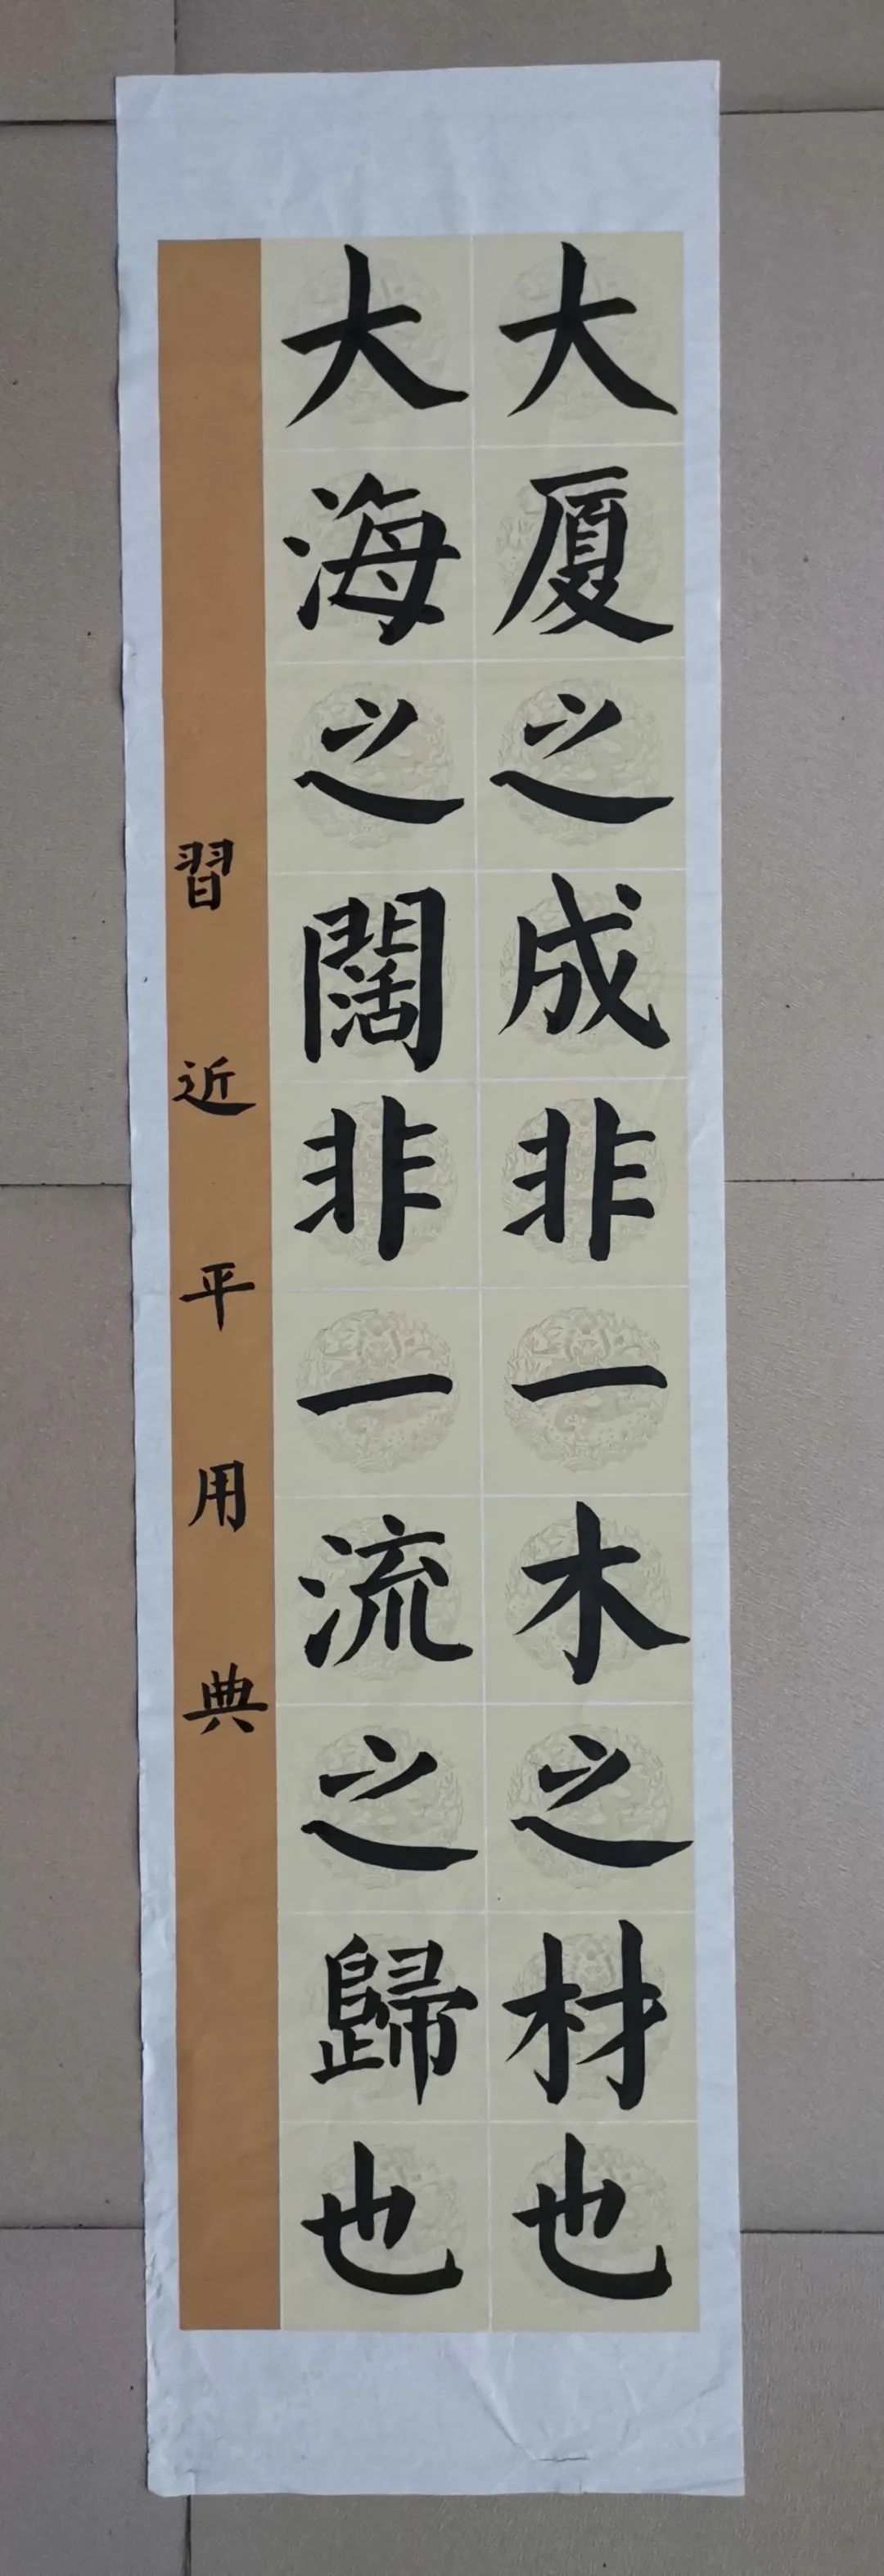 大厦之成非一木之材也
大海之闊非一流之歸也
習近平用典